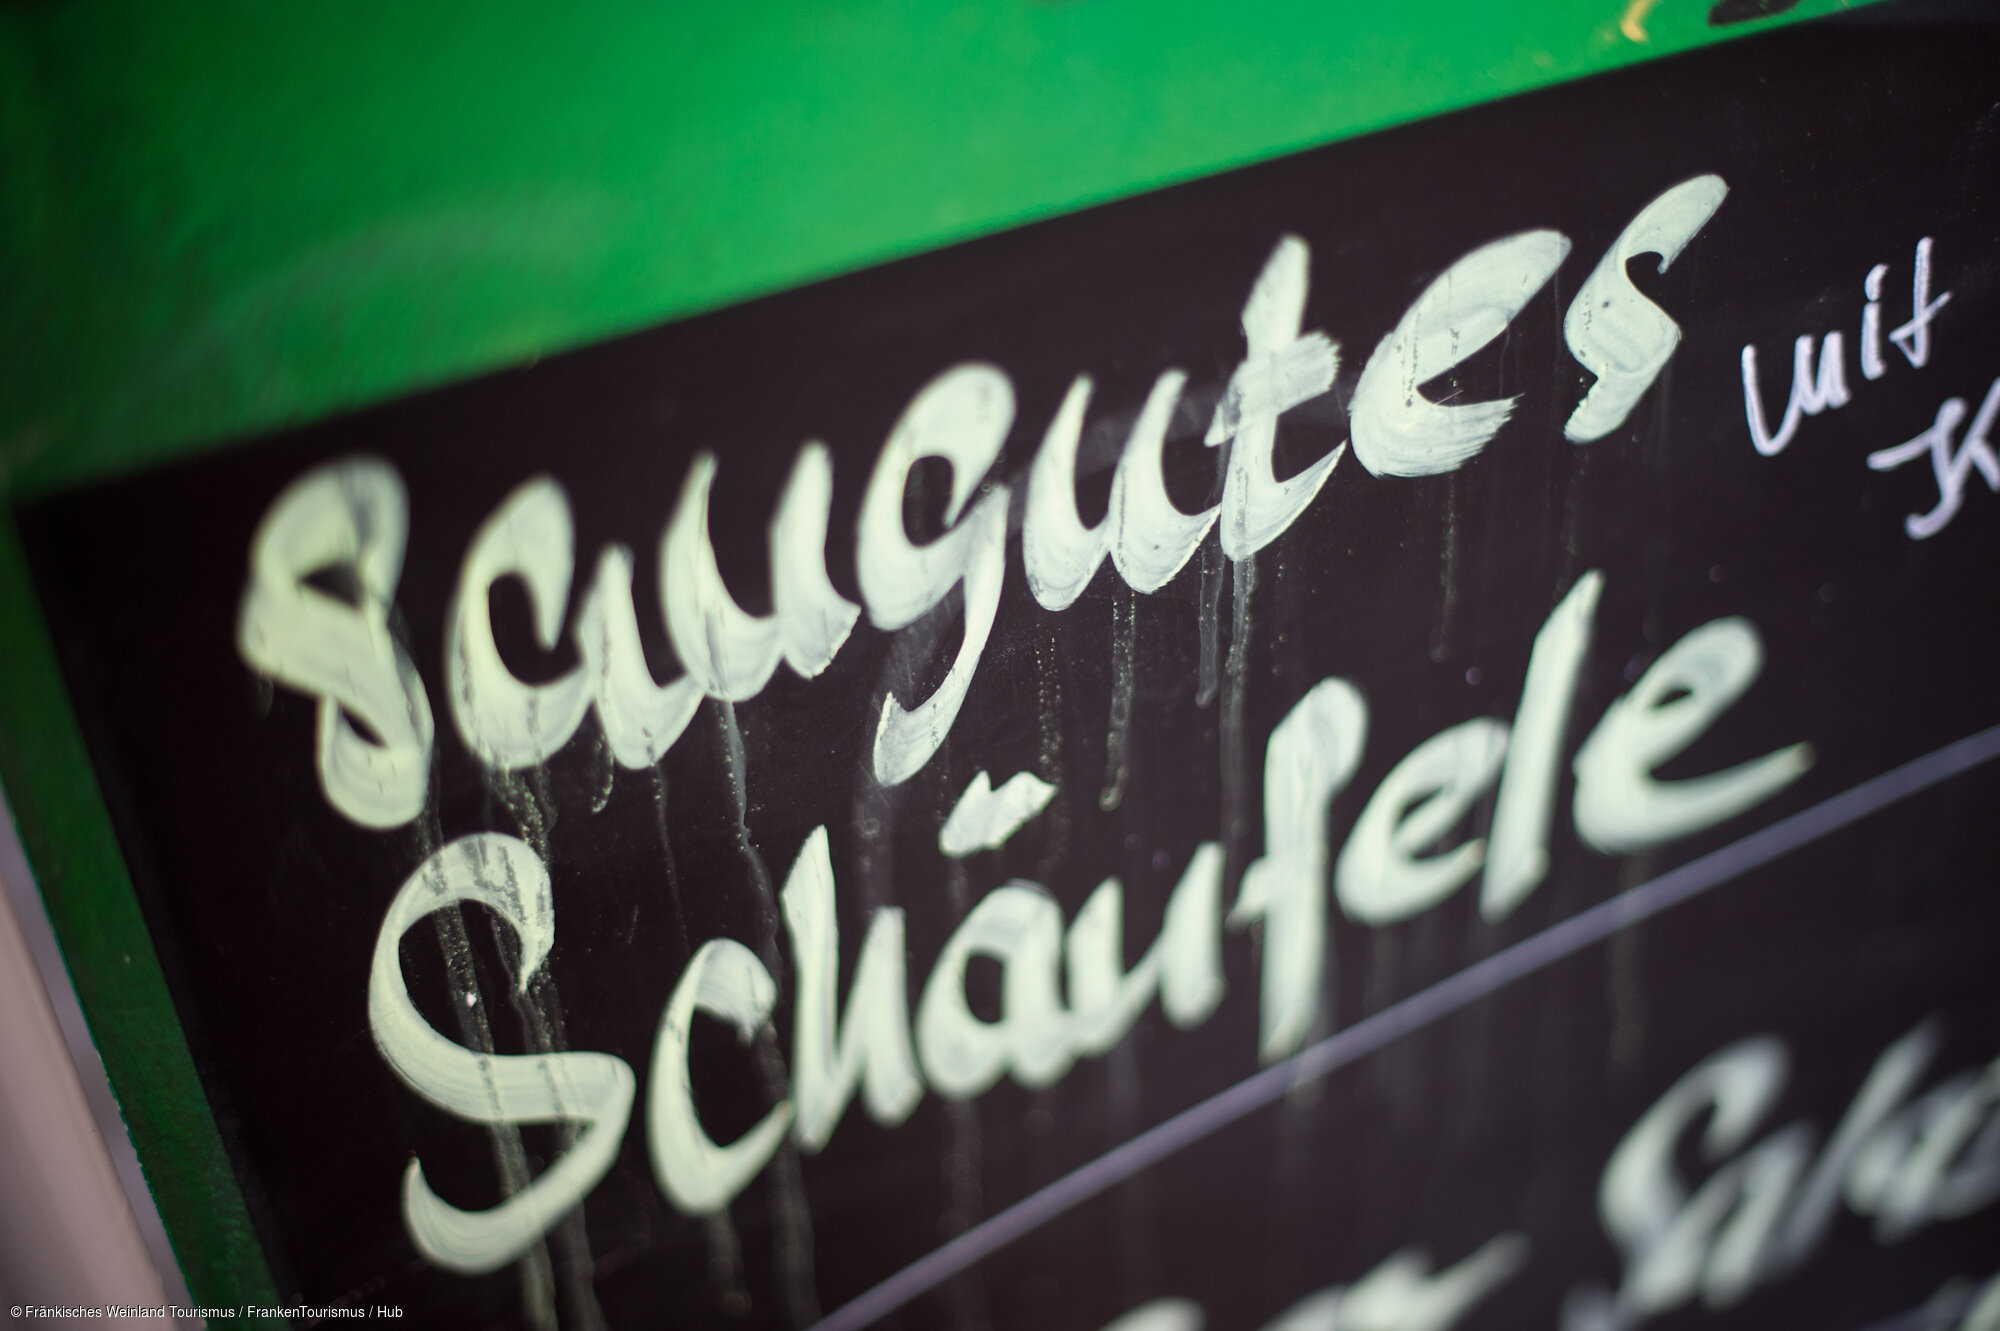 saugutes
mit
K
Schäufele
© Fränkisches Weinland Tourismus / FrankenTourismus / Hub